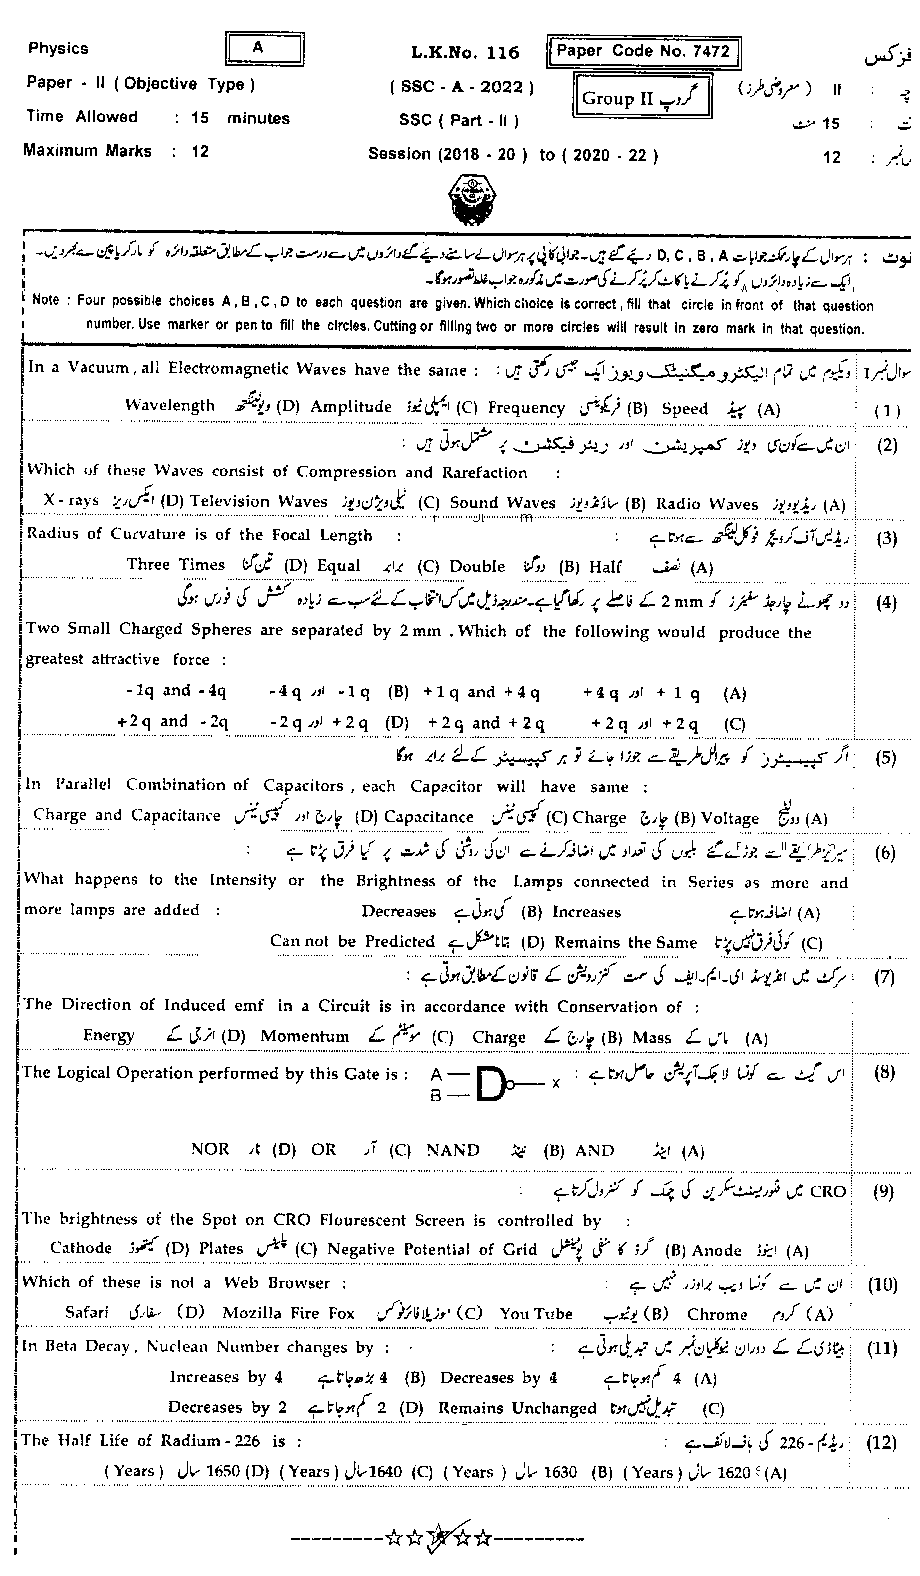 Physics A L.K.No. 116 Paper Code No. 7472 فزکس
Paper - II ( Objective Type ) ( SSC - A - 2022 ) Group II گروپ II ( معروضی طرز )
Time Allowed : 15 minutes SSC ( Part - II ) 15 منٹ :
Maximum Marks : 12 Session (2018 - 20 ) to ( 2020 - 22 ) 12 :
نوٹ : ہر سوال کے چار ممکنہ جوابات D, C, B, A دیئے گئے ہیں۔ جوابی کاپی پر ہر سوال کے سامنے دیئے گئے دائروں میں سے درست جواب کے مطابق متعلقہ دائرہ کو مارکر یا پین سے بھر دیں۔
ایک سے زیادہ دائروں کو پُر کرنے یا کاٹ کر پُر کرنے کی صورت میں مذکورہ جواب غلط تصور ہوگا۔
Note : Four possible choices A , B , C , D to each question are given. Which choice is correct , fill that circle in front of that question
number. Use marker or pen to fill the circles. Cutting or filling two or more circles will result in zero mark in that question.
In a Vacuum , all Electromagnetic Waves have the same : ویکیوم میں تمام الیکٹرومیگنیٹک ویوز ایک جیسی رکھتی ہیں : سوال نمبر 1
Wavelength ویولینگتھ (D) Amplitude ایمپلی ٹیوڈ (C) Frequency فریکوئنسی (B) Speed سپیڈ (A) (1)
ان میں سے کون سی ویوز کمپریشن اور ریئر فیکشن پر مشتمل ہوتی ہیں : (2)
Which of these Waves consist of Compression and Rarefaction :
X - rays ایکس ریز (D) Television Waves ٹیلی ویژن ویوز (C) Sound Waves ساؤنڈ ویوز (B) Radio Waves ریڈیو ویوز (A)
Radius of Curvature is of the Focal Length : ریڈیس آف کرویچر فوکل لینگتھ سے ہوتا ہے : (3)
Three Times تین گنا (D) Equal برابر (C) Double دوگنا (B) Half نصف (A)
دو چھوٹے چارجڈ سفیئرز کو 2 mm کے فاصلے پر رکھا گیا ہے۔ مندرجہ ذیل میں کس انتخاب کے لئے سب سے زیادہ کشش کی فورس ہوگی (4)
Two Small Charged Spheres are separated by 2 mm . Which of the following would produce the
greatest attractive force :
-1q and -4q -4 q اور -1 q (B) +1 q and +4 q +4 q اور + 1 q (A)
+2 q and -2q -2 q اور +2 q (D) +2 q and +2 q +2 q اور +2 q (C)
اگر کپیسیٹرز کو پیرالل طریقے سے جوڑا جائے تو ہر کپیسیٹر کے لئے برابر ہوگا (5)
In Parallel Combination of Capacitors , each Capacitor will have same :
Charge and Capacitance چارج اور کپیسی ٹینس (D) Capacitance کپیسی ٹینس (C) Charge چارج (B) Voltage وولٹیج (A)
سیریز طریقے سے جوڑے گئے بلبوں کی تعداد میں اضافہ کرنے سے ان کی روشنی کی شدت پر کیا فرق پڑتا ہے : (6)
What happens to the Intensity or the Brightness of the Lamps connected in Series as more and
more lamps are added : Decreases کمی ہوتی ہے (B) Increases اضافہ ہوتا ہے (A)
Can not be Predicted بتانا مشکل ہے (D) Remains the Same کوئی فرق نہیں پڑتا (C)
سرکٹ میں انڈیوسڈ ای۔ایم۔ایف کی سمت کنزرویشن کے قانون کے مطابق ہوتی ہے : (7)
The Direction of Induced emf in a Circuit is in accordance with Conservation of :
Energy انرجی کے (D) Momentum مومینٹم کے (C) Charge چارج کے (B) Mass ماس کے (A)
The Logical Operation performed by this Gate is : A B X اس گیٹ سے کونسا لاجک آپریشن حاصل ہوتا ہے : (8)
NOR نار (D) OR آر (C) NAND نینڈ (B) AND اینڈ (A)
CRO میں فلوریسنٹ سکرین کی چمک کو کنٹرول کرتا ہے : (9)
The brightness of the Spot on CRO Flourescent Screen is controlled by :
Cathode کیتھوڈ (D) Plates پلیٹس (C) Negative Potential of Grid گرڈ کا منفی پوٹینشل (B) Anode اینوڈ (A)
Which of these is not a Web Browser : ان میں سے کونسا ویب براوزر نہیں ہے : (10)
Safari سفاری (D) Mozilla Fire Fox موزیلا فائرفوکس (C) You Tube یوٹیوب (B) Chrome کروم (A)
In Beta Decay , Nuclean Number changes by : بیٹا ڈی کے کے دوران نیوکلیان نمبر میں تبدیلی ہوتی ہے : (11)
Increases by 4 4 بڑھ جاتا ہے (B) Decreases by 4 4 کم ہو جاتا ہے (A)
Decreases by 2 2 کم ہو جاتا ہے (D) Remains Unchanged تبدیل نہیں ہوتا (C)
The Half Life of Radium - 226 is : ریڈیم - 226 کی ہاف لائف ہے : (12)
(Years) سال 1650 (D) (Years) سال 1640 (C) (Years) سال 1630 (B) (Years) سال 1620 (A)